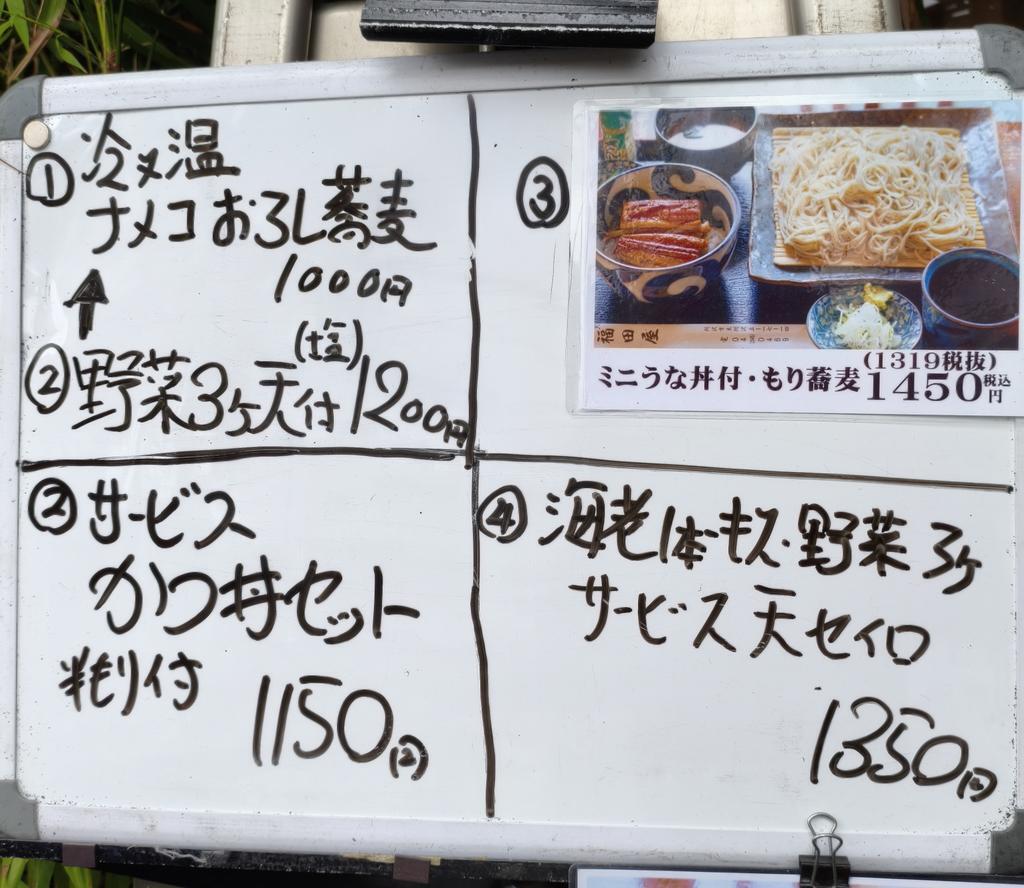 ① 冷 〆 温
ナメコおろし蕎麦
1000円
↑
(塩)
② 野菜3ヶ天付 1200円
③
福田屋
(1319税抜)
ミニうな丼付・もり蕎麦1450税込円
② サービス
かつ丼セット
半もり付
1150円
④ 海老1本・キス・野菜3ヶ
サービス天セイロ
1350円